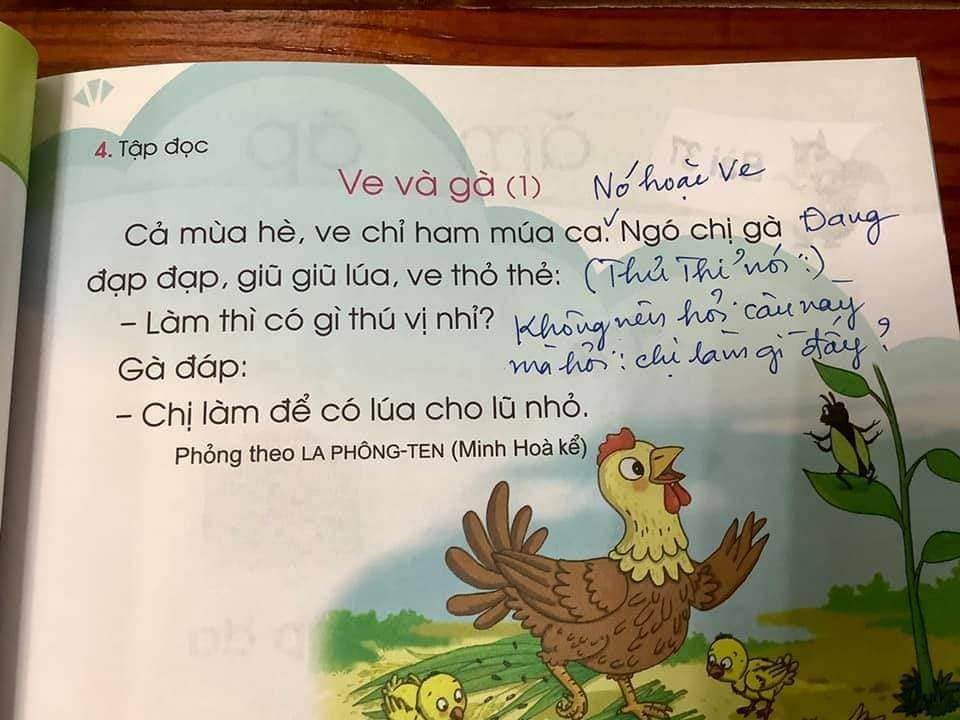 4. Tập đọc
Ve và gà (1) Nó hoặc Ve
Cả mùa hè, ve chỉ ham múa ca. Ngó chị gà Đang
đạp đạp, giũ giũ lúa, ve thỏ thẻ: (Thủ Thỉ nói:)
– Làm thì có gì thú vị nhỉ? Không nên hỏi câu này
mà hỏi: chị làm gì đấy?
Gà đáp:
– Chị làm để có lúa cho lũ nhỏ.
Phỏng theo LA PHÔNG-TEN (Minh Hoà kể)